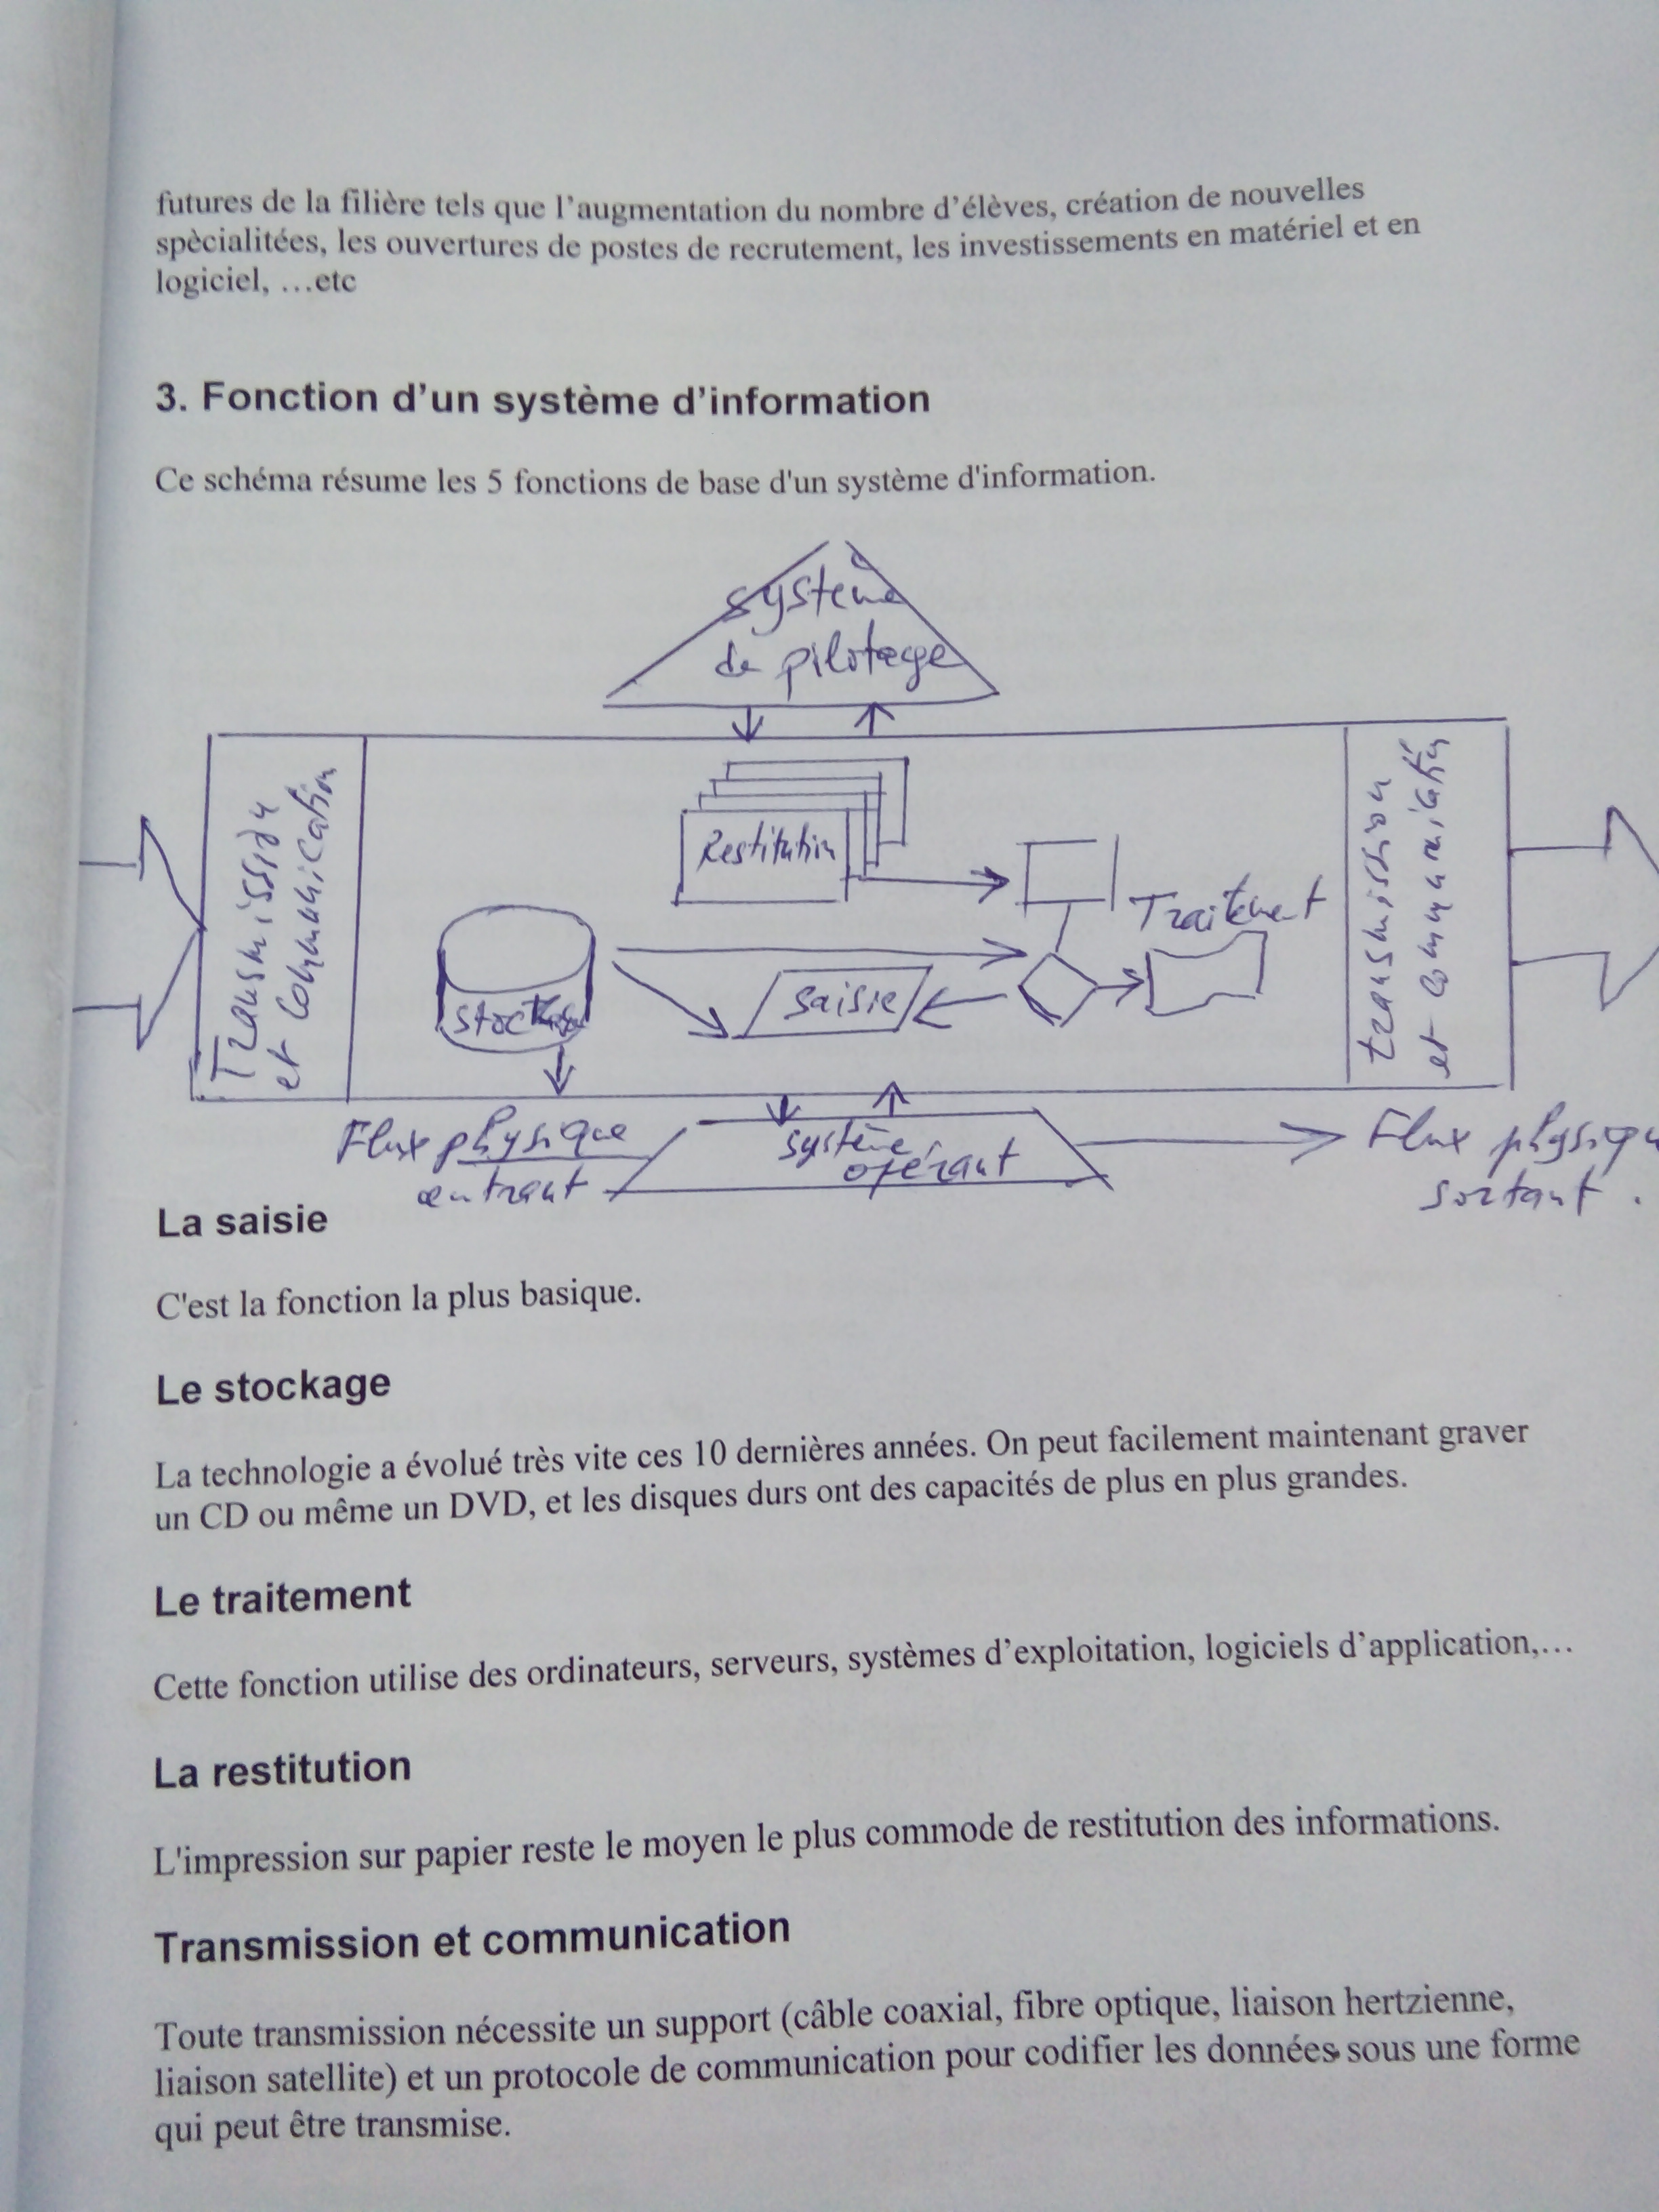 futures de la filière tels que l'augmentation du nombre d'élèves, création de nouvelles
spècialitées, les ouvertures de postes de recrutement, les investissements en matériel et en
logiciel, …etc
3. Fonction d'un système d'information
Ce schéma résume les 5 fonctions de base d'un système d'information.
système
de pilotage
Transmission
et communication
Restitution
Traitement
stockage
saisie
transmission
et communication
Flux physique
entrant
système
opérant
Flux physiqu
sortant.
La saisie
C'est la fonction la plus basique.
Le stockage
La technologie a évolué très vite ces 10 dernières années. On peut facilement maintenant graver
un CD ou même un DVD, et les disques durs ont des capacités de plus en plus grandes.
Le traitement
Cette fonction utilise des ordinateurs, serveurs, systèmes d'exploitation, logiciels d'application,…
La restitution
L'impression sur papier reste le moyen le plus commode de restitution des informations.
Transmission et communication
Toute transmission nécessite un support (câble coaxial, fibre optique, liaison hertzienne,
liaison satellite) et un protocole de communication pour codifier les données sous une forme
qui peut être transmise.